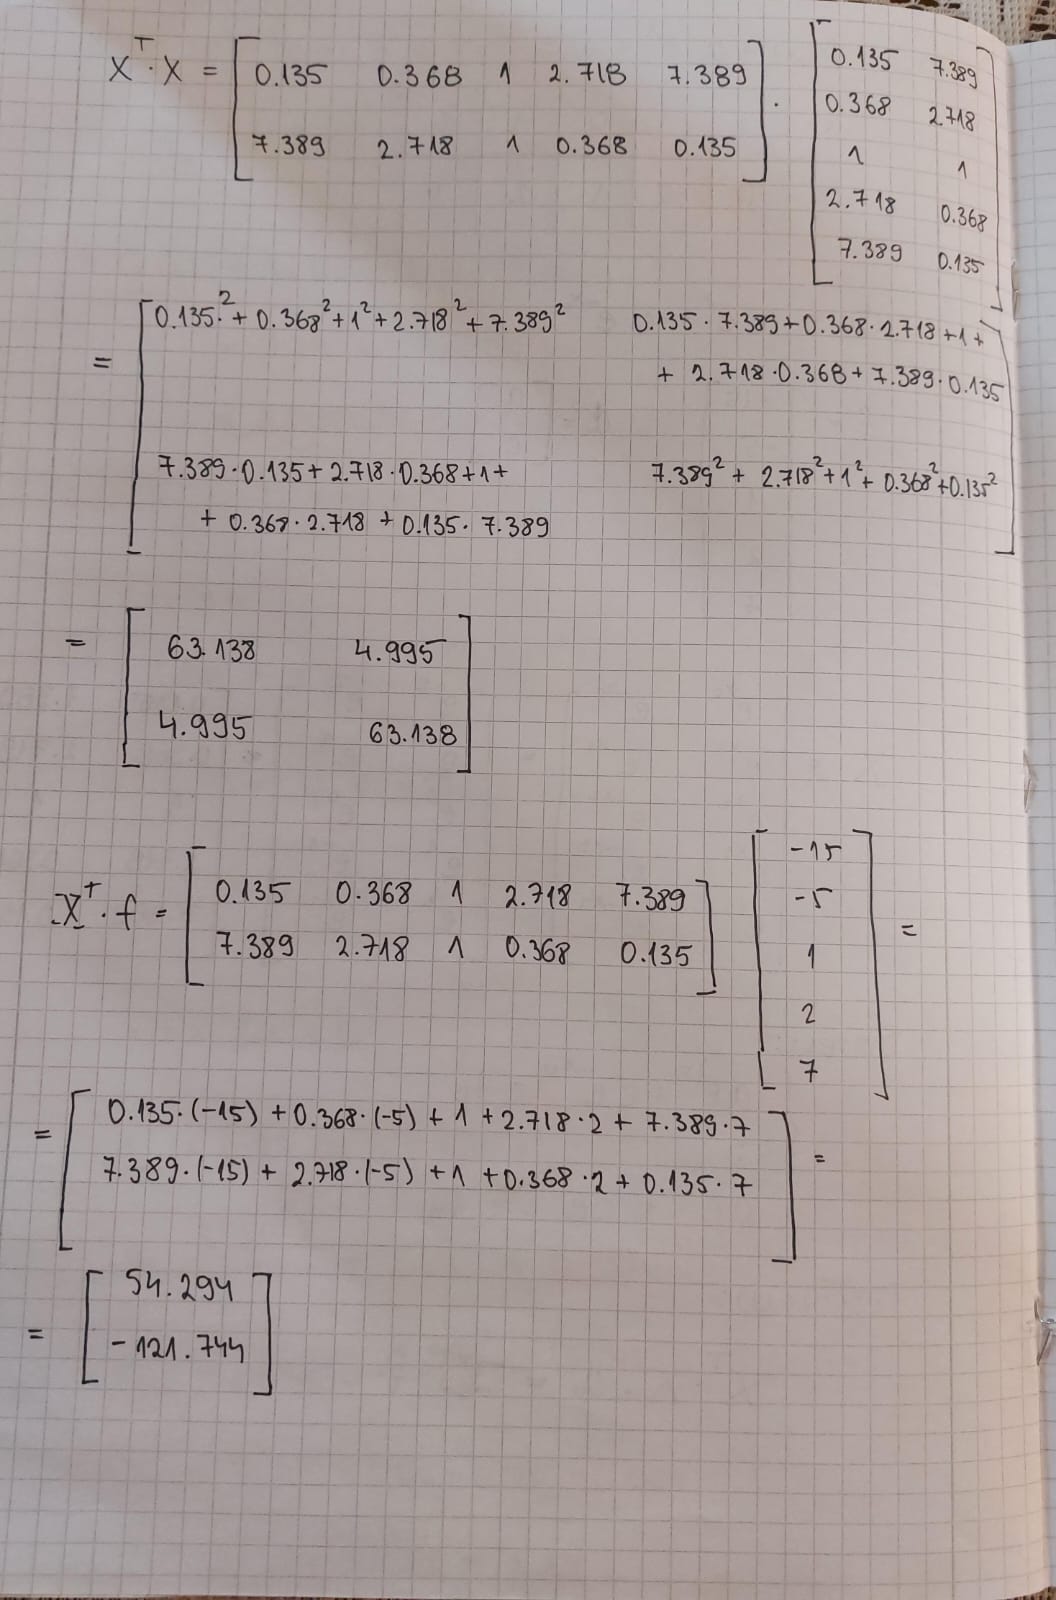 X^T · X = [ 0.135 0.368 1 2.718 7.389 ] · [ 0.135 7.389 ]
[ 7.389 2.718 1 0.368 0.135 ] [ 0.368 2.718 ]
[ 1 1 ]
[ 2.718 0.368 ]
[ 7.389 0.135 ]
= [ 0.135² + 0.368² + 1² + 2.718² + 7.389² 0.135 · 7.389 + 0.368 · 2.718 + 1 +
+ 2.718 · 0.368 + 7.389 · 0.135
7.389 · 0.135 + 2.718 · 0.368 + 1 + 7.389² + 2.718² + 1² + 0.368² + 0.135²
+ 0.368 · 2.718 + 0.135 · 7.389 ]
= [ 63.138 4.995 ]
[ 4.995 63.138 ]
X^T · f = [ 0.135 0.368 1 2.718 7.389 ] [ -15 ] =
[ 7.389 2.718 1 0.368 0.135 ] [ -5 ]
[ 1 ]
[ 2 ]
[ 7 ]
= [ 0.135 · (-15) + 0.368 · (-5) + 1 + 2.718 · 2 + 7.389 · 7 ] =
[ 7.389 · (-15) + 2.718 · (-5) + 1 + 0.368 · 2 + 0.135 · 7 ]
= [ 54.294 ]
[ -121.744 ]